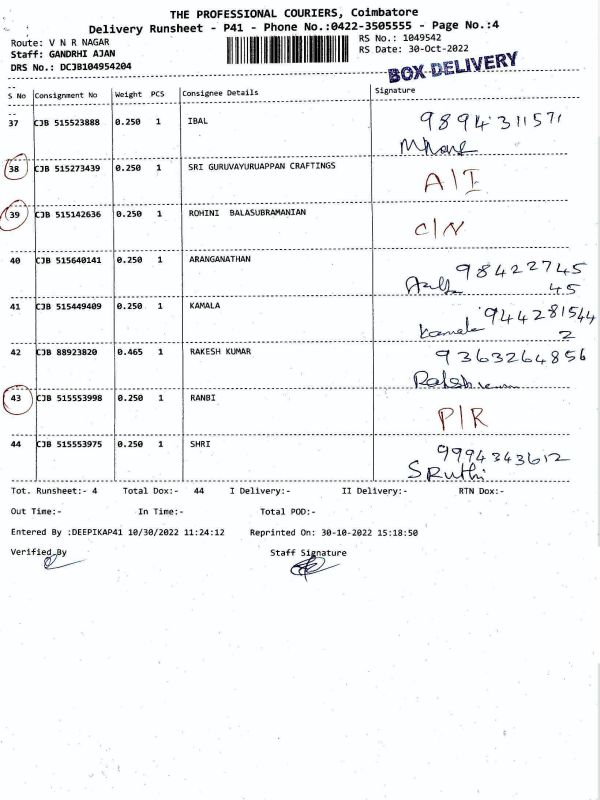 THE PROFESSIONAL COURIERS, Coimbatore
Delivery Runsheet - P41 - Phone No.:0422-3505555 - Page No.:4
Route: V N R NAGAR
RS No.: 1049542
Staff: GANDRHI AJAN
RS Date: 30-Oct-2022
DRS No.: DCJB104954204
BOX DELIVERY
S No Consignment No Weight PCS Consignee Details Signature
37 CJB 515523888 0.250 1 IBAL 9894311571
38 CJB 515273439 0.250 1 SRI GURUVAYURUAPPAN CRAFTINGS A|I
39 CJB 515142636 0.250 1 ROHINI BALASUBRAMANIAN C|N
40 CJB 515640141 0.250 1 ARANGANATHAN 98422745
45
41 CJB 515449409 0.250 1 KAMALA 944281544
Kamala 2
42 CJB 88923820 0.465 1 RAKESH KUMAR 9363264856
43 CJB 515553998 0.250 1 RANBI P|R
44 CJB 515553975 0.250 1 SHRI 9994343612
SRuthi
Tot. Runsheet:- 4 Total Dox:- 44 I Delivery:- II Delivery:- RTN Dox:-
Out Time:- In Time:- Total POD:-
Entered By :DEEPIKAP41 10/30/2022 11:24:12 Reprinted On: 30-10-2022 15:18:50
Verified By Staff Signature